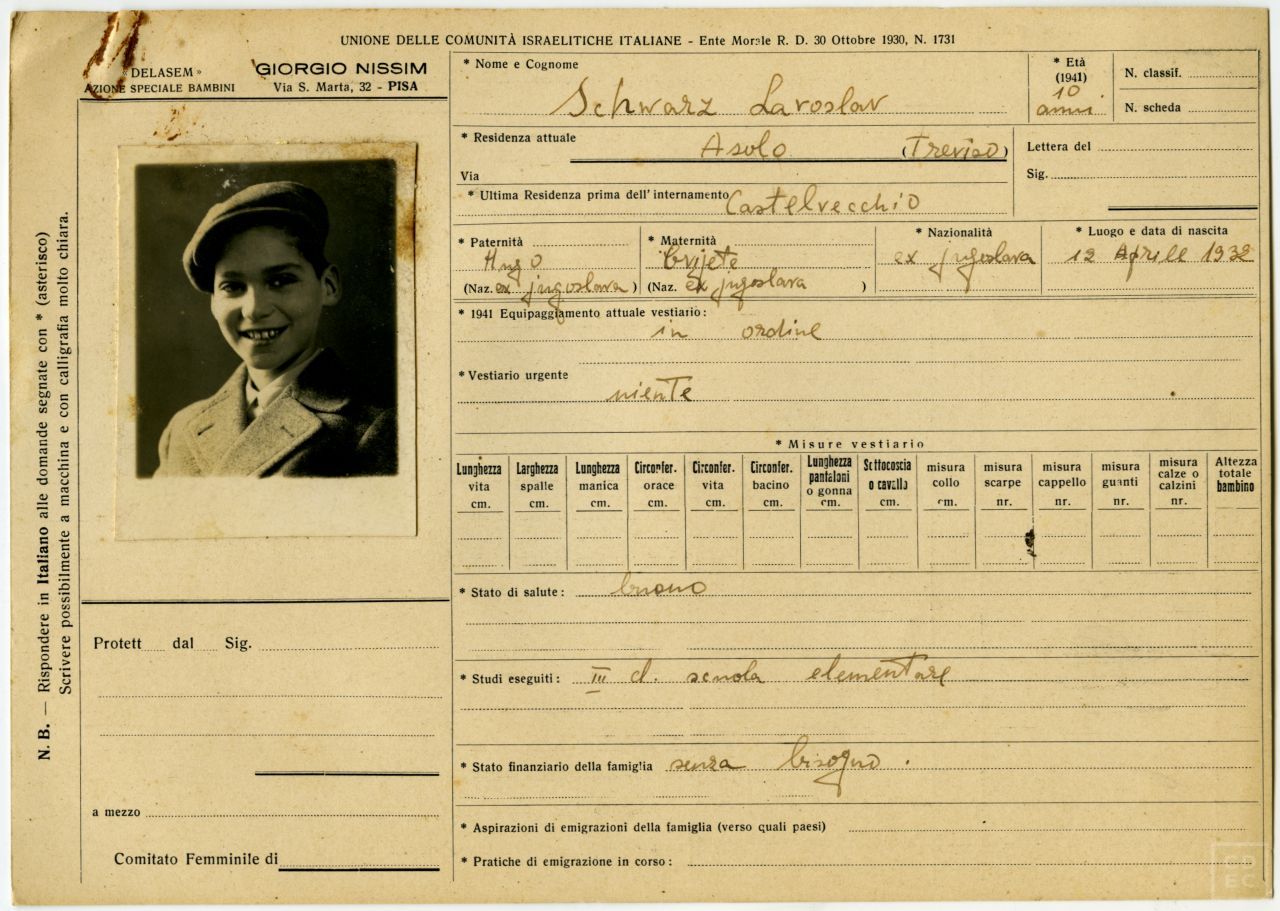 UNIONE DELLE COMUNITÀ ISRAELITICHE ITALIANE - Ente Morale R. D. 30 Ottobre 1930, N. 1731
« DELASEM »
AZIONE SPECIALE BAMBINI
GIORGIO NISSIM
Via S. Marta, 32 - PISA
N. B. — Rispondere in Italiano alle domande segnate con * (asterisco)
Scrivere possibilmente a macchina e con calligrafia molto chiara.
Protett dal Sig.
a mezzo
Comitato Femminile di
* Nome e Cognome
Schwarz Laroslav
* Età
(1941)
10
anni
N. classif.
N. scheda
* Residenza attuale Asolo (Treviso)
Via
Lettera del
Sig.
* Ultima Residenza prima dell'internamento Castelvecchio
* Paternità
Hugo
(Naz. ex jugoslava)
* Maternità
(Naz. ex jugoslava)
* Nazionalità
ex jugoslava
* Luogo e data di nascita
12 Aprile 1932
* 1941 Equipaggiamento attuale vestiario:
in ordine
* Vestiario urgente
niente
* Misure vestiario
Lunghezza vita cm.
Larghezza spalle cm.
Lunghezza manica cm.
Circonfer. orace cm.
Circonfer. vita cm.
Circonfer. bacino cm.
Lunghezza pantaloni o gonna cm.
Sottocoscia o cavallo cm.
misura collo cm.
misura scarpe nr.
misura cappello nr.
misura guanti nr.
misura calze o calzini nr.
Altezza totale bambino
* Stato di salute: buono
* Studi eseguiti: III cl. scuola elementare
* Stato finanziario della famiglia senza bisogno.
* Aspirazioni di emigrazioni della famiglia (verso quali paesi)
* Pratiche di emigrazione in corso:
CDEC